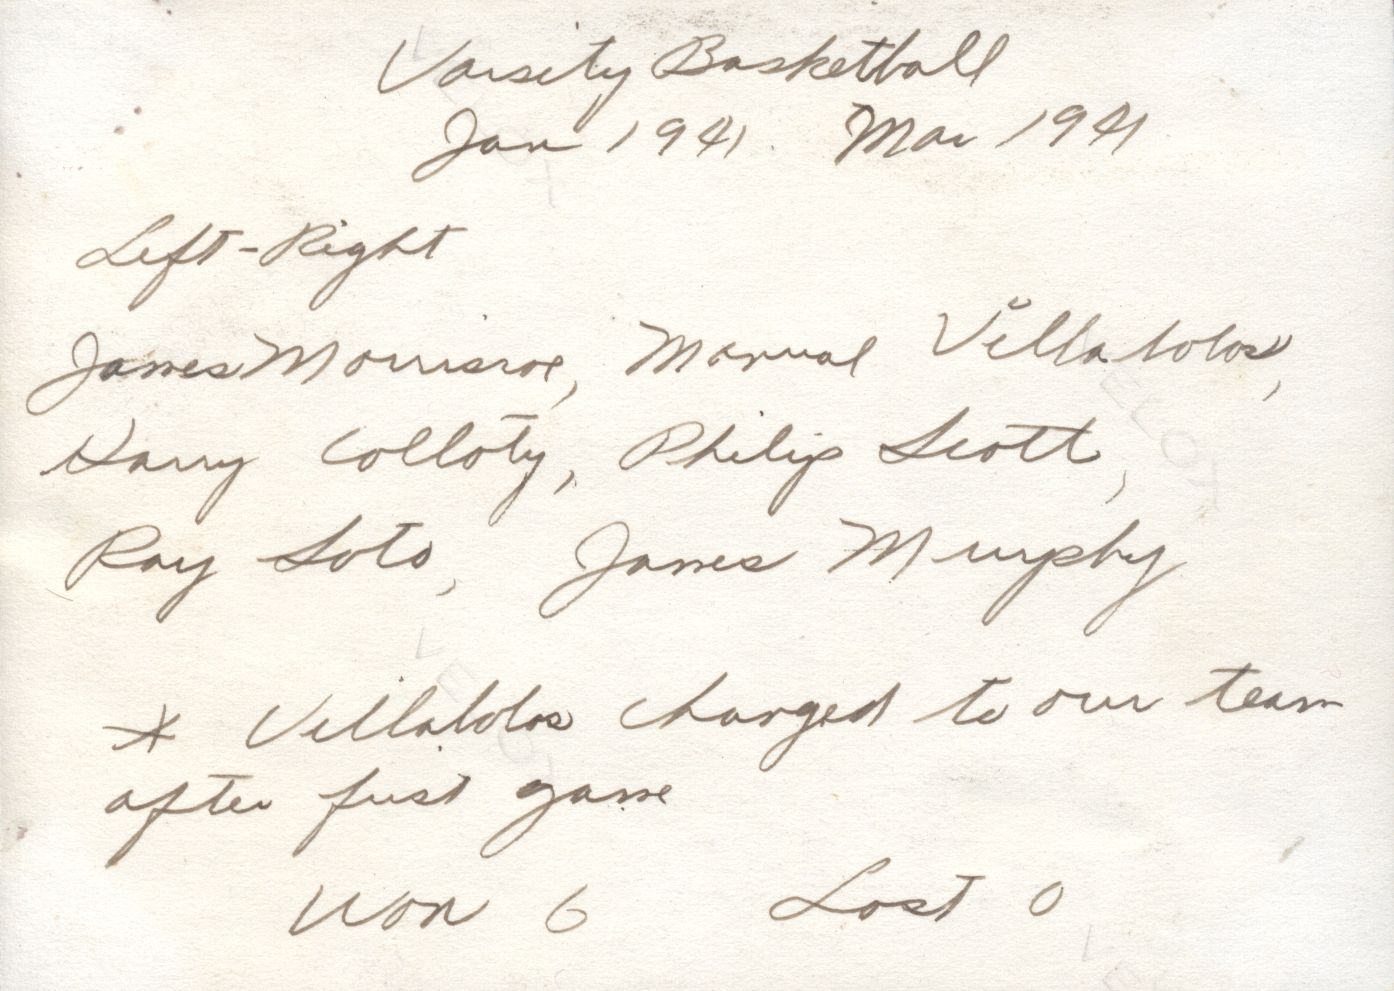 Varsity Basketball
Jan 1941 Mar 1941
Left-Right
James Morrisroe, Manual Villalolos,
Harry Colloty, Philip Scott,
Ray Soto, James Murphy
* Villalolos changed to our team
after first game
Won 6 Lost 0